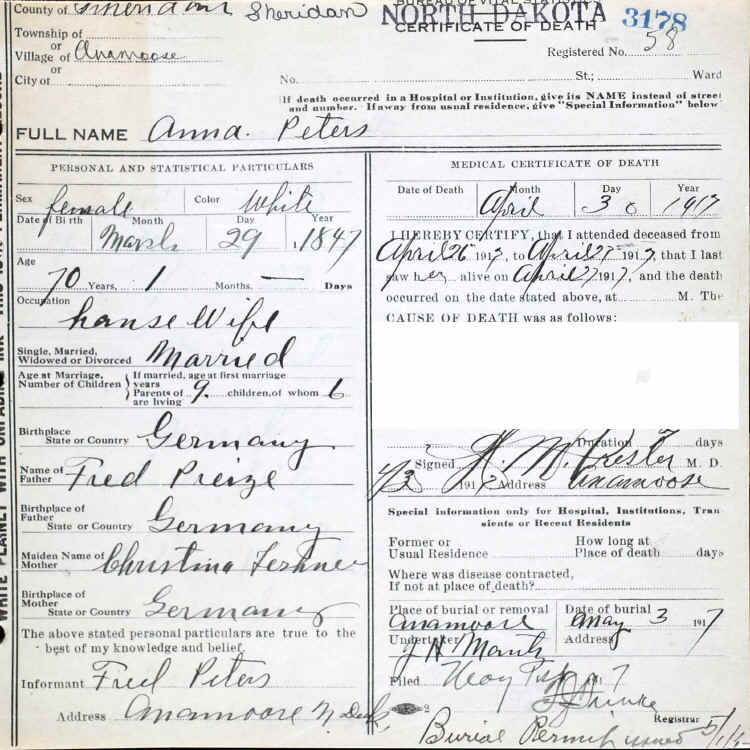 County of Sheridan
BUREAU OF VITAL
NORTH DAKOTA 3178
CERTIFICATE OF DEATH
Township of
or
Registered No. 58
Village of Anamoose
or
City of
No. St.; Ward
If death occurred in a Hospital or Institution, give its NAME instead of street
and number. If away from usual residence, give "Special Information" below
FULL NAME Anna. Peters
PERSONAL AND STATISTICAL PARTICULARS
Sex female Color White
Date of Birth Month Day Year
March 29, 1847
Age
70 Years, 1 Months. — Days
Occupation
hause Wife
Single, Married,
Widowed or Divorced Married
Age at Marriage, If married, age at first marriage
Number of Children years
Parents of 9. children, of whom 6
are living
Birthplace
State or Country Germany
Name of
Father Fred Preize
Birthplace of
Father
State or Country Germany
Maiden Name of
Mother Christina
Birthplace of
Mother
State or Country Germany
The above stated personal particulars are true to the
best of my knowledge and belief.
Informant Fred Peters
Address Anamoose N. Dak
MEDICAL CERTIFICATE OF DEATH
Date of Death Month Day Year
April 30 1917
I HEREBY CERTIFY, that I attended deceased from
April 26 1917, to April 27 1917, that I last
saw her alive on April 27 1917, and the death
occurred on the date stated above, at M. The
CAUSE OF DEATH was as follows:
Duration days
Signed M. D.
1917 Address Anamoose
Special information only for Hospital, Institutions, Tran
sients or Recent Residents
Former or How long at
Usual Residence Place of death days
Where was disease contracted,
If not at place of death?
Place of burial or removal Date of burial
Anamoose May 3 1917
Undertaker Address
J H
Filed
Registrar
Burial Permit issued 5/1/
WRITE PLAINLY WITH UNFADING INK